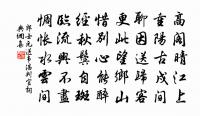 高閣晴江上
重陽古戍間
聊因送歸客
更此望鄉山
惜別心能醉
經秋鬢自斑
臨流興不盡
惆悵水雲間
郎士元送韋湛判官詞
典網集